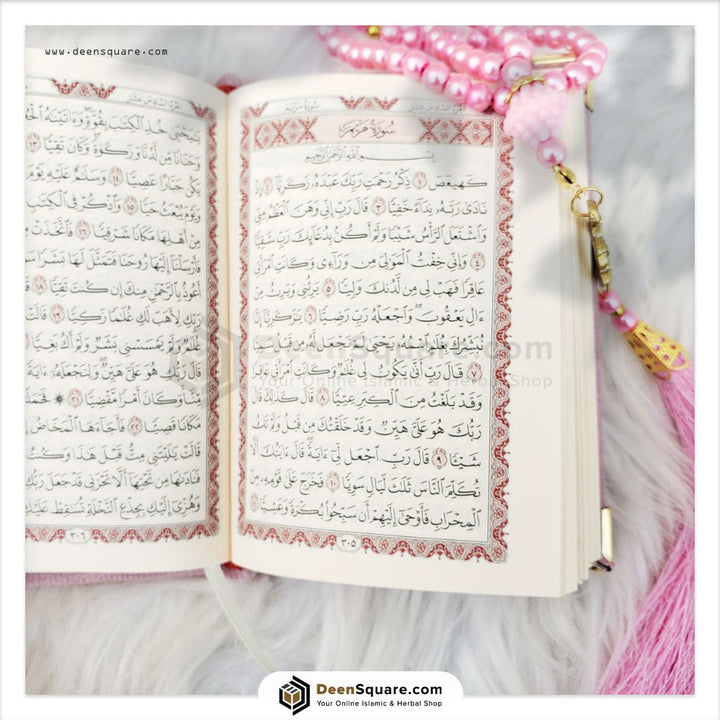 www.deensquare.com
سُورَةُ مَرْيَمَ الجُزْءُ السَّادِسَ عَشَرَ
سُورَةُ مَرْيَمَ
بِسْمِ اللَّهِ الرَّحْمَٰنِ الرَّحِيمِ
كٓهيعٓصٓ ١ ذِكْرُ رَحْمَتِ رَبِّكَ عَبْدَهُ زَكَرِيَّا ٢ إِذْ
نَادَىٰ رَبَّهُ نِدَآءً خَفِيًّا ٣ قَالَ رَبِّ إِنِّي وَهَنَ الْعَظْمُ مِنِّي
وَاشْتَعَلَ الرَّأْسُ شَيْبًا وَلَمْ أَكُنْ بِدُعَآئِكَ رَبِّ شَقِيًّا
٤ وَإِنِّي خِفْتُ الْمَوَٰلِيَ مِنْ وَرَآءِي وَكَانَتِ امْرَأَتِي
عَاقِرًا فَهَبْ لِي مِنْ لَدُنْكَ وَلِيًّا ٥ يَرِثُنِي وَيَرِثُ مِنْ
ءَالِ يَعْقُوبَ ۖ وَاجْعَلْهُ رَبِّ رَضِيًّا ٦ يَٰزَكَرِيَّآ إِنَّا
نُبَشِّرُكَ بِغُلَٰمٍ اسْمُهُ يَحْيَىٰ لَمْ نَجْعَلْ لَهُ مِنْ قَبْلُ سَمِيًّا
٧ قَالَ رَبِّ أَنَّىٰ يَكُونُ لِي غُلَٰمٌ وَكَانَتِ امْرَأَتِي عَاقِرًا
وَقَدْ بَلَغْتُ مِنَ الْكِبَرِ عِتِيًّا ٨ قَالَ كَذَٰلِكَ قَالَ
رَبُّكَ هُوَ عَلَيَّ هَيِّنٌ وَقَدْ خَلَقْتُكَ مِنْ قَبْلُ وَلَمْ تَكُ
شَيْئًا ٩ قَالَ رَبِّ اجْعَلْ لِي ءَايَةً ۚ قَالَ ءَايَتُكَ أَلَّا
تُكَلِّمَ النَّاسَ ثَلَٰثَ لَيَالٍ سَوِيًّا ١٠ فَخَرَجَ عَلَىٰ قَوْمِهِ مِنَ
الْمِحْرَابِ فَأَوْحَىٰ إِلَيْهِمْ أَنْ سَبِّحُوا بُكْرَةً وَعَشِيًّا ١١
٣٠٥
الجُزْءُ السَّادِسَ عَشَرَ
يَٰيَحْيَىٰ خُذِ الْكِتَٰبَ بِقُوَّةٍ ۖ وَءَاتَيْنَٰهُ
وَحَنَانًا مِنْ لَدُنَّا وَزَكَوٰةً ۖ وَكَانَ تَقِيًّا ١٣
يَكُنْ جَبَّارًا عَصِيًّا ١٤ وَسَلَٰمٌ عَلَيْهِ يَوْمَ
وَيَوْمَ يُبْعَثُ حَيًّا ١٥ وَاذْكُرْ فِي الْكِتَٰبِ
مِنْ أَهْلِهَا مَكَانًا شَرْقِيًّا ١٦ فَاتَّخَذَتْ
فَأَرْسَلْنَآ إِلَيْهَا رُوحَنَا فَتَمَثَّلَ لَهَا بَشَرًا
أَعُوذُ بِالرَّحْمَٰنِ مِنْكَ إِنْ كُنْتَ تَقِيًّا ١٨
رَبِّكِ لِأَهَبَ لَكِ غُلَٰمًا زَكِيًّا ١٩
غُلَٰمٌ وَلَمْ يَمْسَسْنِي بَشَرٌ وَلَمْ أَكُ
قَالَ رَبُّكِ هُوَ عَلَيَّ هَيِّنٌ ۖ وَلِنَجْعَلَهُ ءَايَةً
مِنَّا ۚ وَكَانَ أَمْرًا مَقْضِيًّا ٢١
مَكَانًا قَصِيًّا ٢٢ فَأَجَآءَهَا الْمَخَاضُ
قَالَتْ يَٰلَيْتَنِي مِتُّ قَبْلَ هَٰذَا وَكُنْتُ
فَنَادَىٰهَا مِنْ تَحْتِهَآ أَلَّا تَحْزَنِي قَدْ جَعَلَ رَبُّكِ
وَهُزِّيٓ إِلَيْكِ بِجِذْعِ النَّخْلَةِ تُسَٰقِطْ عَلَيْكِ
٣٠٦
DeenSquare.com
Your Online Islamic & Herbal Shop
DeenSquare.com
Your Online Islamic & Herbal Shop